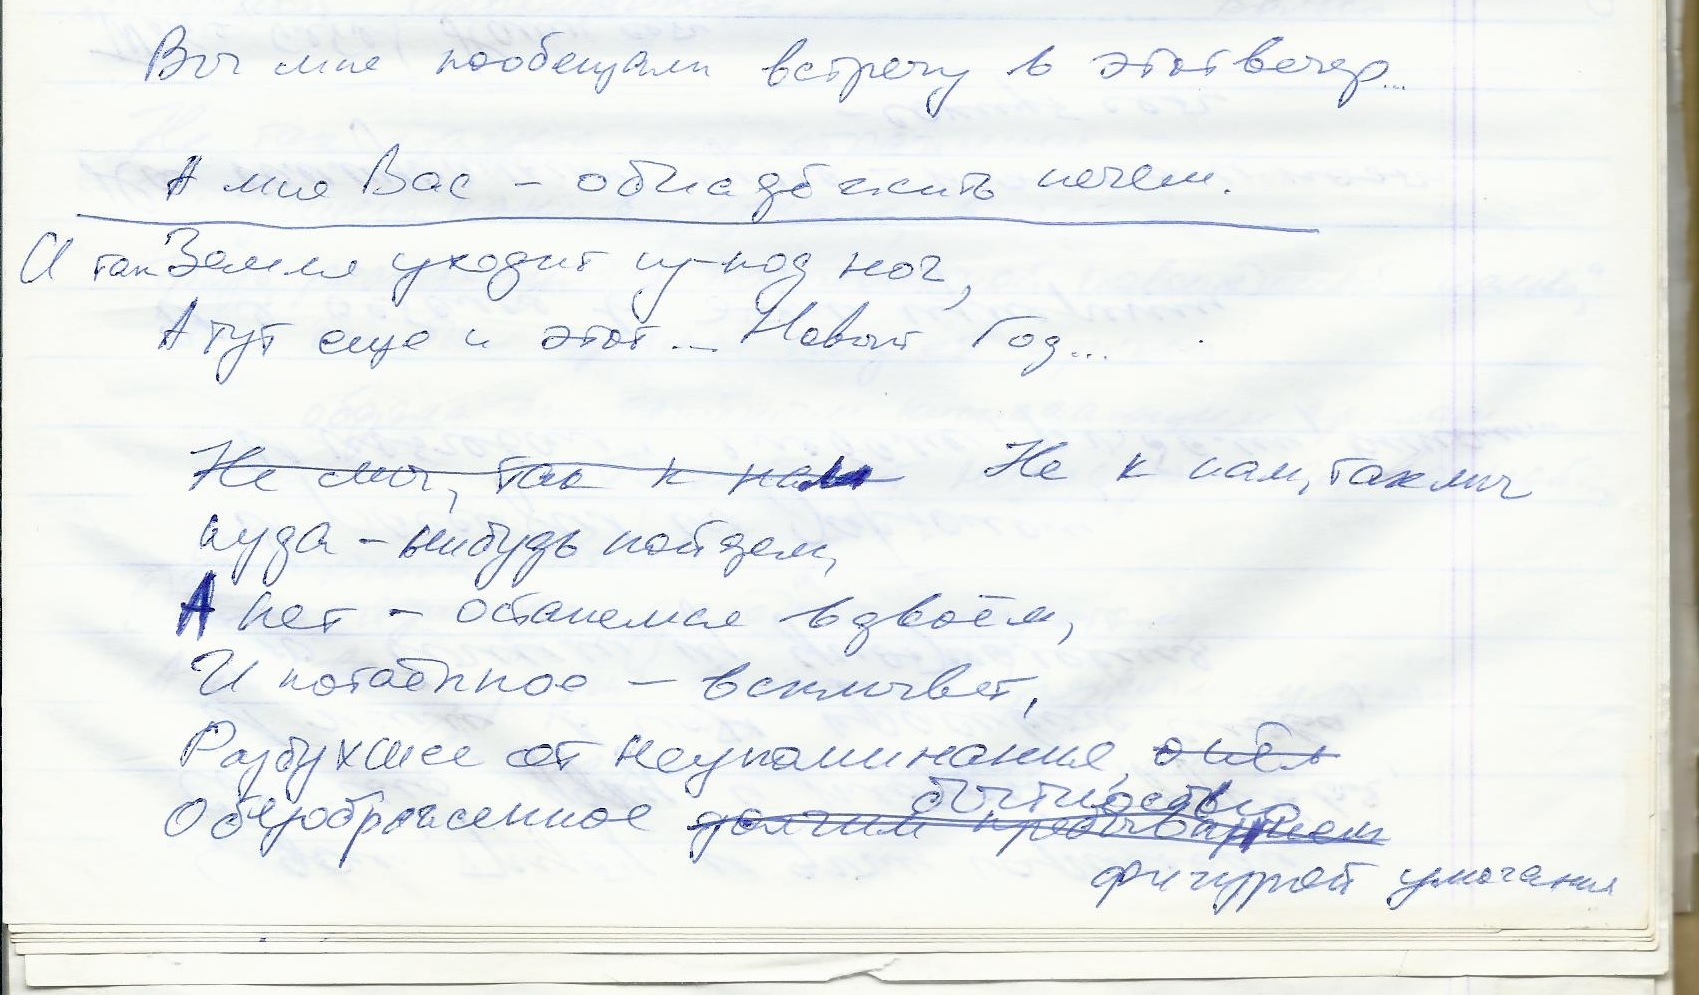 Вы мне пообещали встречу в этот вечер...
А мне Вас – обнадёжить нечем.
И так Земля уходит из-под ног,
А тут еще и этот... Новый Год...
Не мы, так к нам Не к нам, так мы
куда-нибудь пойдем,
А нет – останемся вдвоём,
И потаённое – всплывет,
Разбухшее от неупоминания,
бытность
Обезображенное долгим пребыванием
фигурой умолчания